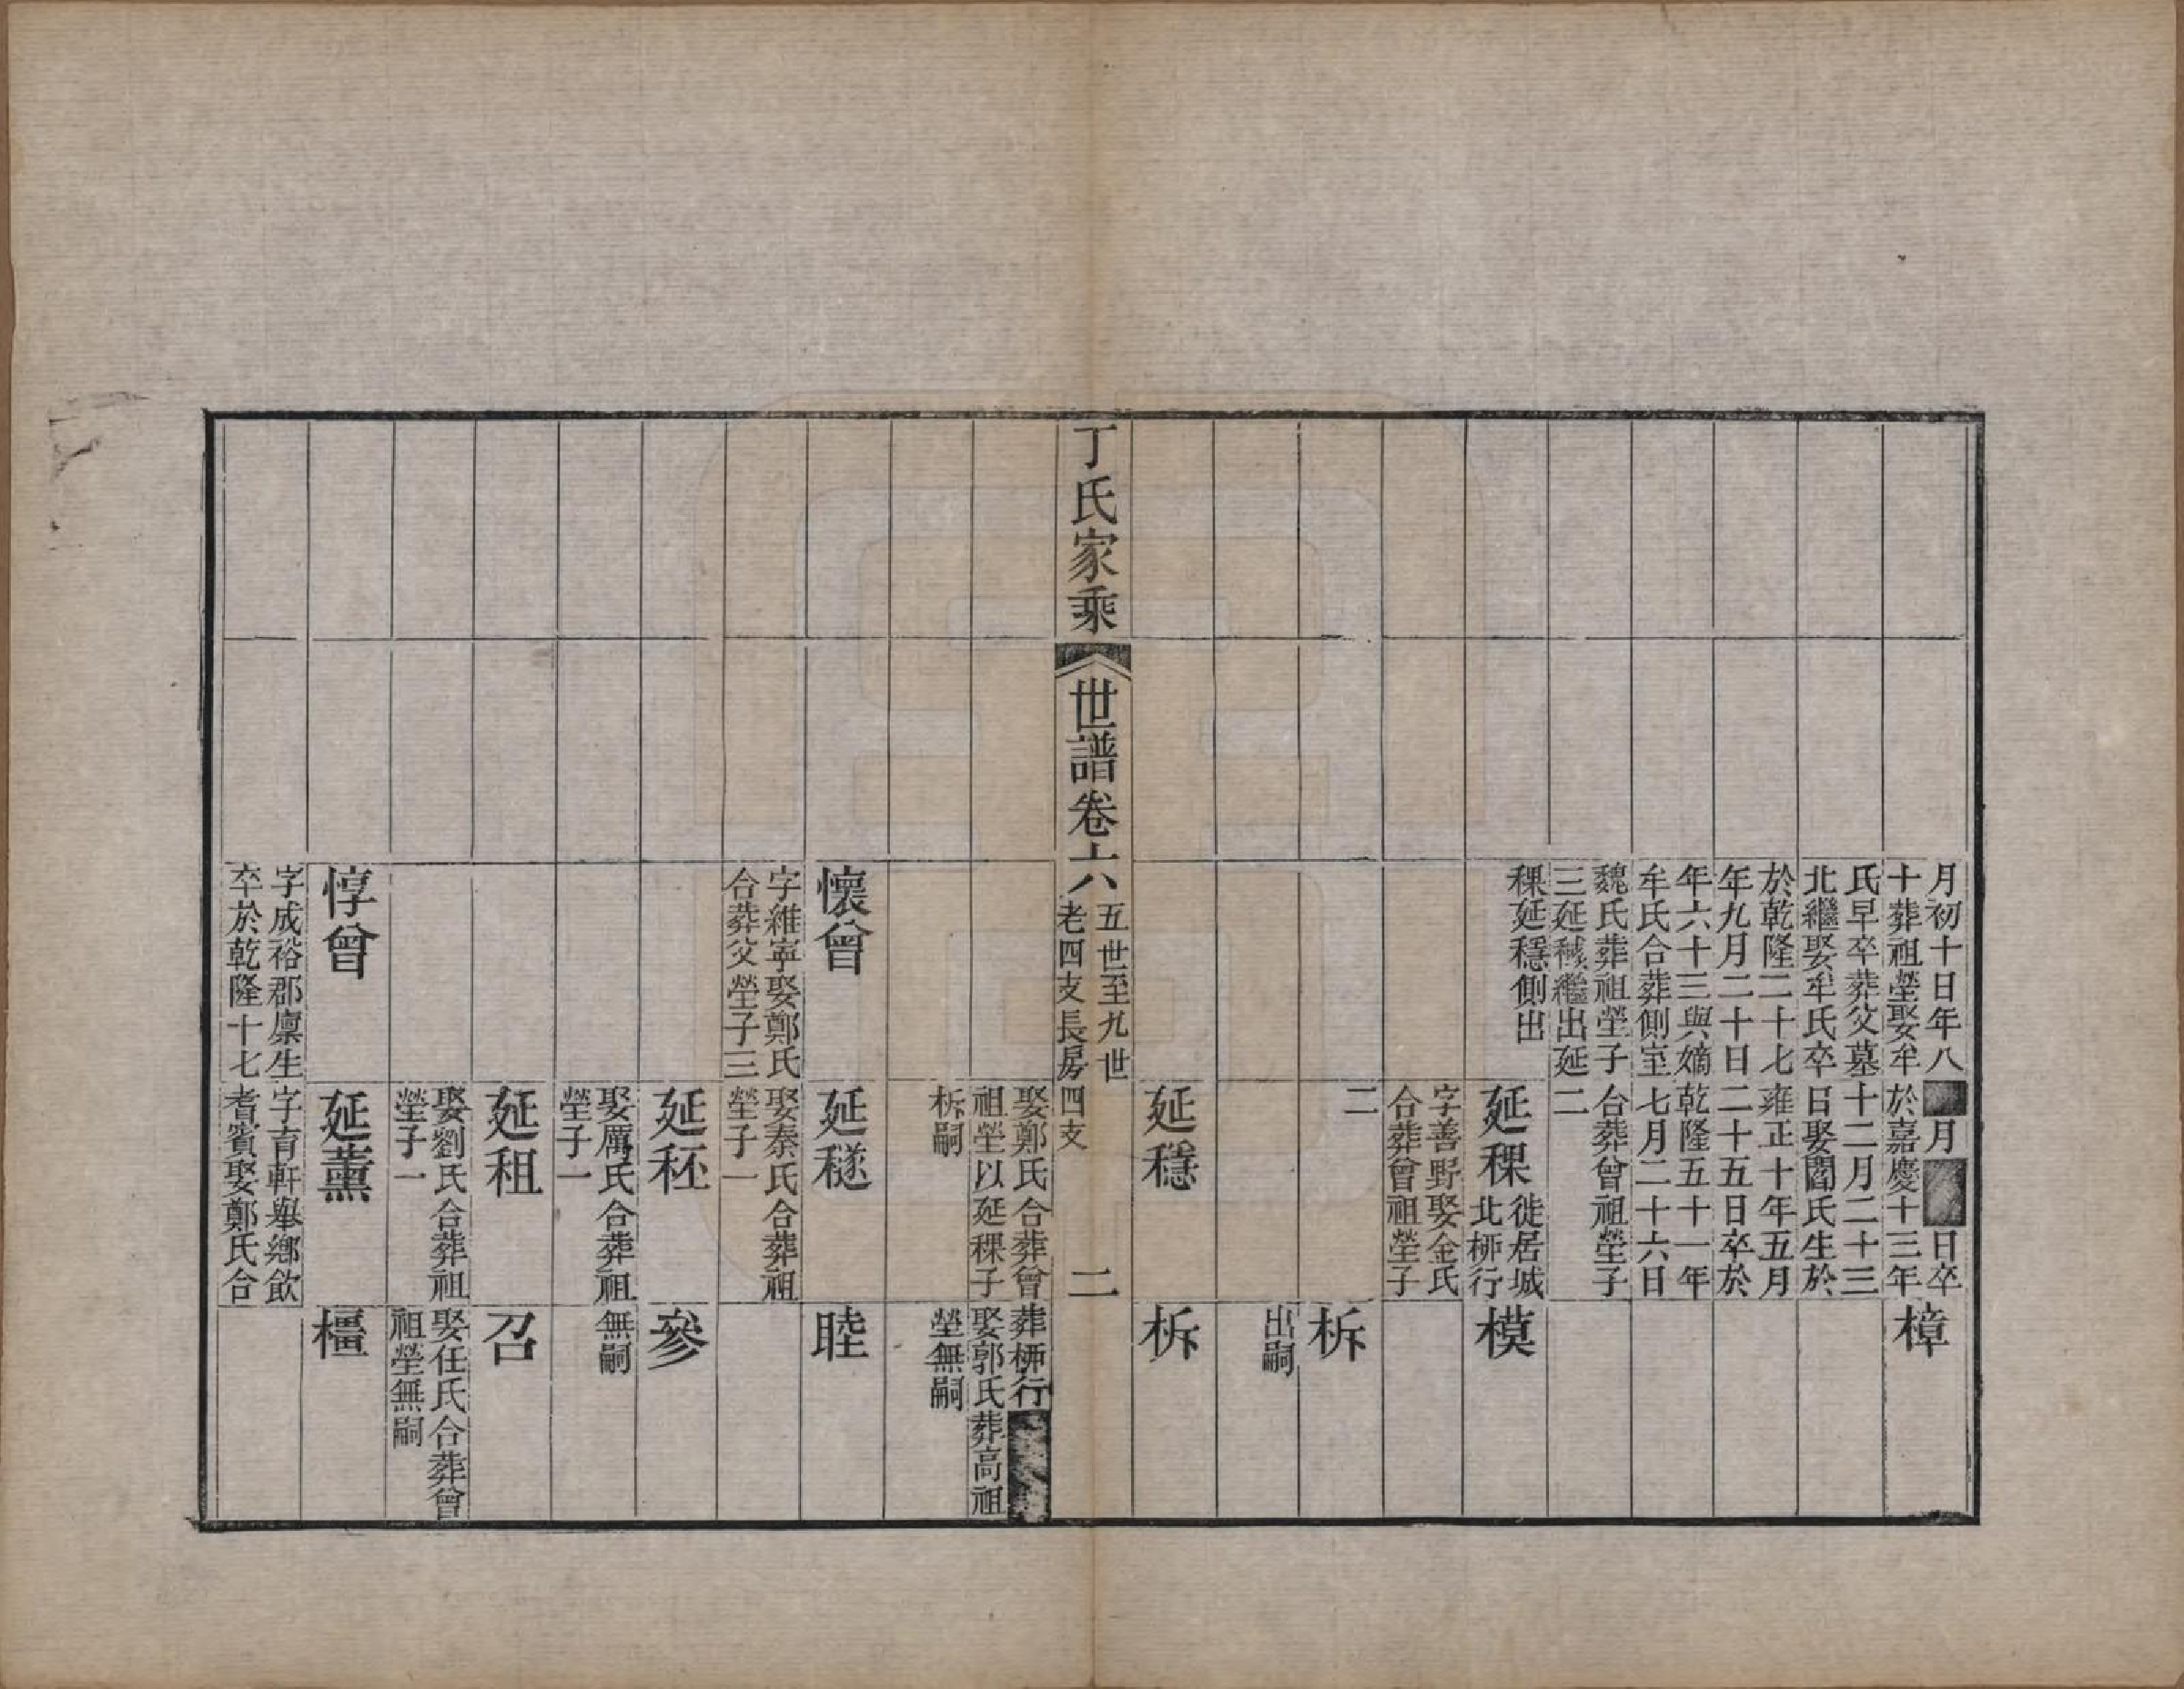 月初十日年八
十葬祖塋娶牟
氏早卒葬父墓
北繼娶牟氏卒
於乾隆二十七
年九月二十日
年六十三與嫡
牟氏合葬側室
魏氏葬祖塋子
三延穢繼出延
稞延穩側出
月 日卒
於嘉慶十三年
十二月二十三
日娶閻氏生於
雍正十年五月
二十五日卒於
乾隆五十一年
七月二十六日
合葬曾祖塋子
二
樟
延稞
徙居城
北桞行
模
字善野娶金氏
合葬曾祖塋子
二
柝
出嗣
延穩
柝
丁氏家乘
世譜卷六
五世至九世
老四支長房四支
二
娶鄭氏合葬曾
祖塋以延稞子
柝嗣
葬桞行
娶郭氏葬高祖
塋無嗣
懷曾
字維寧娶鄭氏
合葬父塋子三
延穟
睦
娶秦氏合葬祖
塋子一
延秠
參
娶厲氏合葬祖
塋子一
無嗣
延租
召
娶劉氏合葬祖
塋子一
娶任氏合葬曾
祖塋無嗣
惇曾
延薰
橿
字成裕郡廩生
卒於乾隆十七
字育軒舉鄉飲
耆賓娶鄭氏合